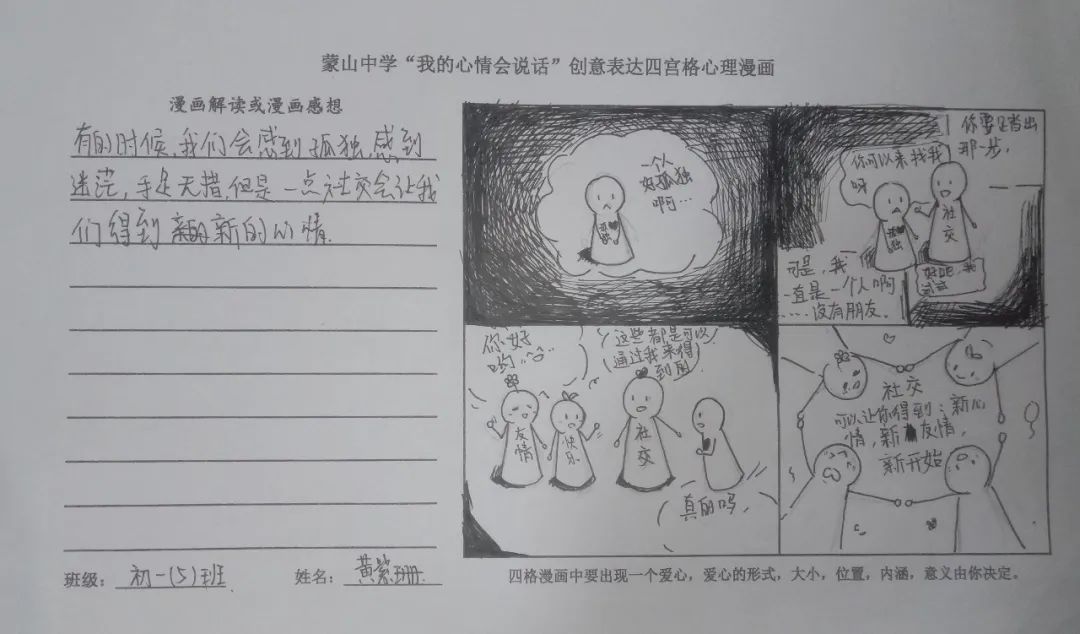 蒙山中学“我的心情会说话”创意表达四宫格心理漫画
漫画解读或漫画感想
有的时候,我们会感到孤独,感到
迷茫,手足无措,但是一点社交会让我
们得到新的心情.
班级:初一(5)班
姓名:黄紫珊
一个人
好孤独
啊…
孤独
你要踏出
那一步,
你可以来找我
呀
社交
孤独
可是,我
一直是一个人啊
……没有朋友。
好吧,我
试试
你好
哟
这些都是可以
通过我来得
到用
友情
快乐
社交
真的吗,
社交
可以让你得到:新心
情,新友情,
新开始
四格漫画中要出现一个爱心,爱心的形式,大小,位置,内涵,意义由你决定。